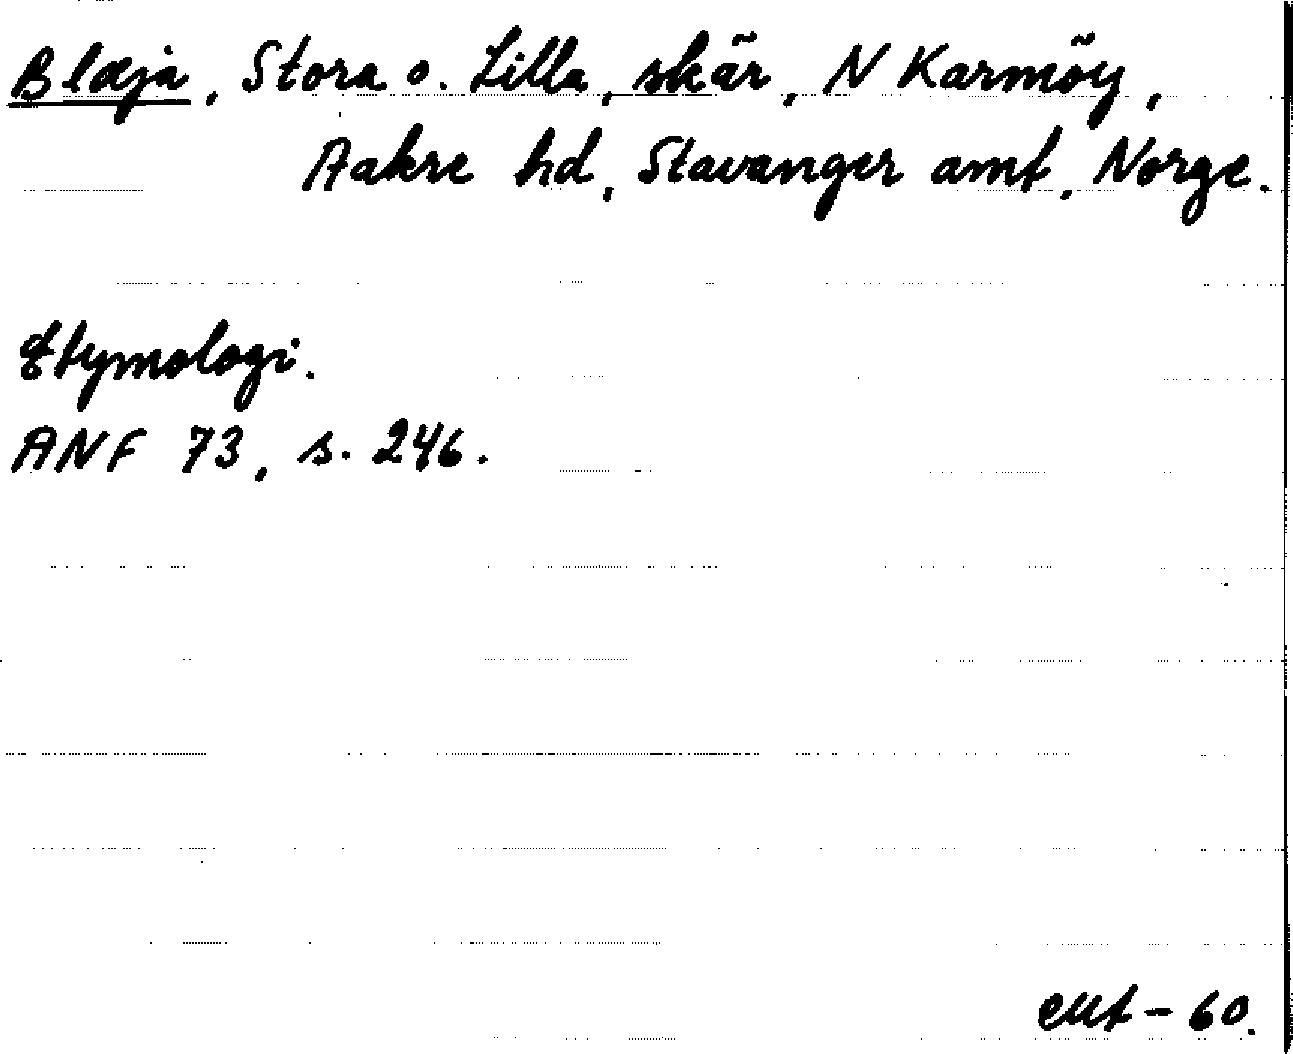 Blæja, Stora o. Lilla, skär, N Karmöy,
Aakre hd, Stavanger amt, Norge.
Etymologi.
ANF 73, s. 246.
EMt - 60.